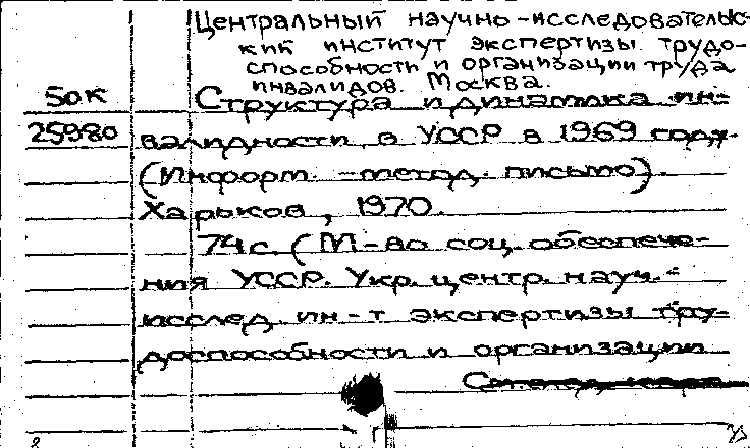 Центральный научно-исследовательс-
кий институт экспертизы трудо-
способности и организации труда
инвалидов. Москва.
50к Структура и динамика ин-
25980 валидности в УССР в 1969 году.
(Информ. - метод. письмо).
Харьков, 1970.
74 с. (М-во соц. обеспече-
ния УССР. Укр. центр. науч.-
исслед. ин-т экспертизы тру-
доспособности и организации
См. след. карт.